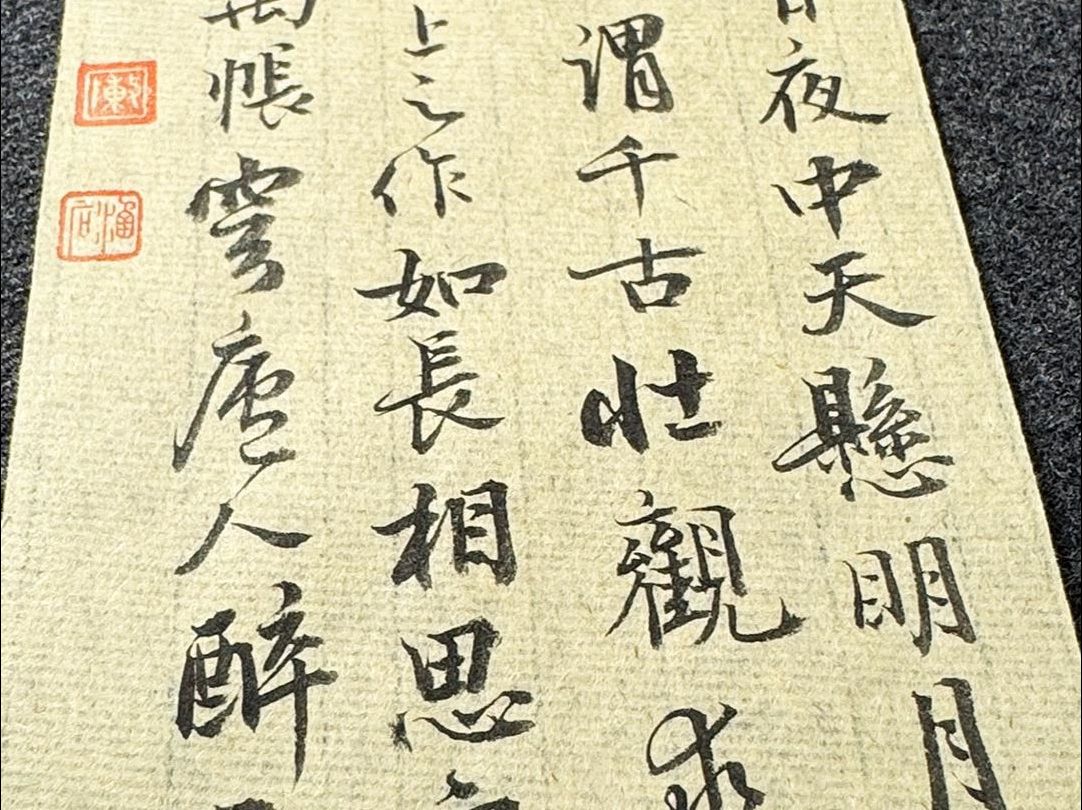 日夜中天懸明月
謂千古壯觀求
上之作如長相思
萬帳穹廬人醉